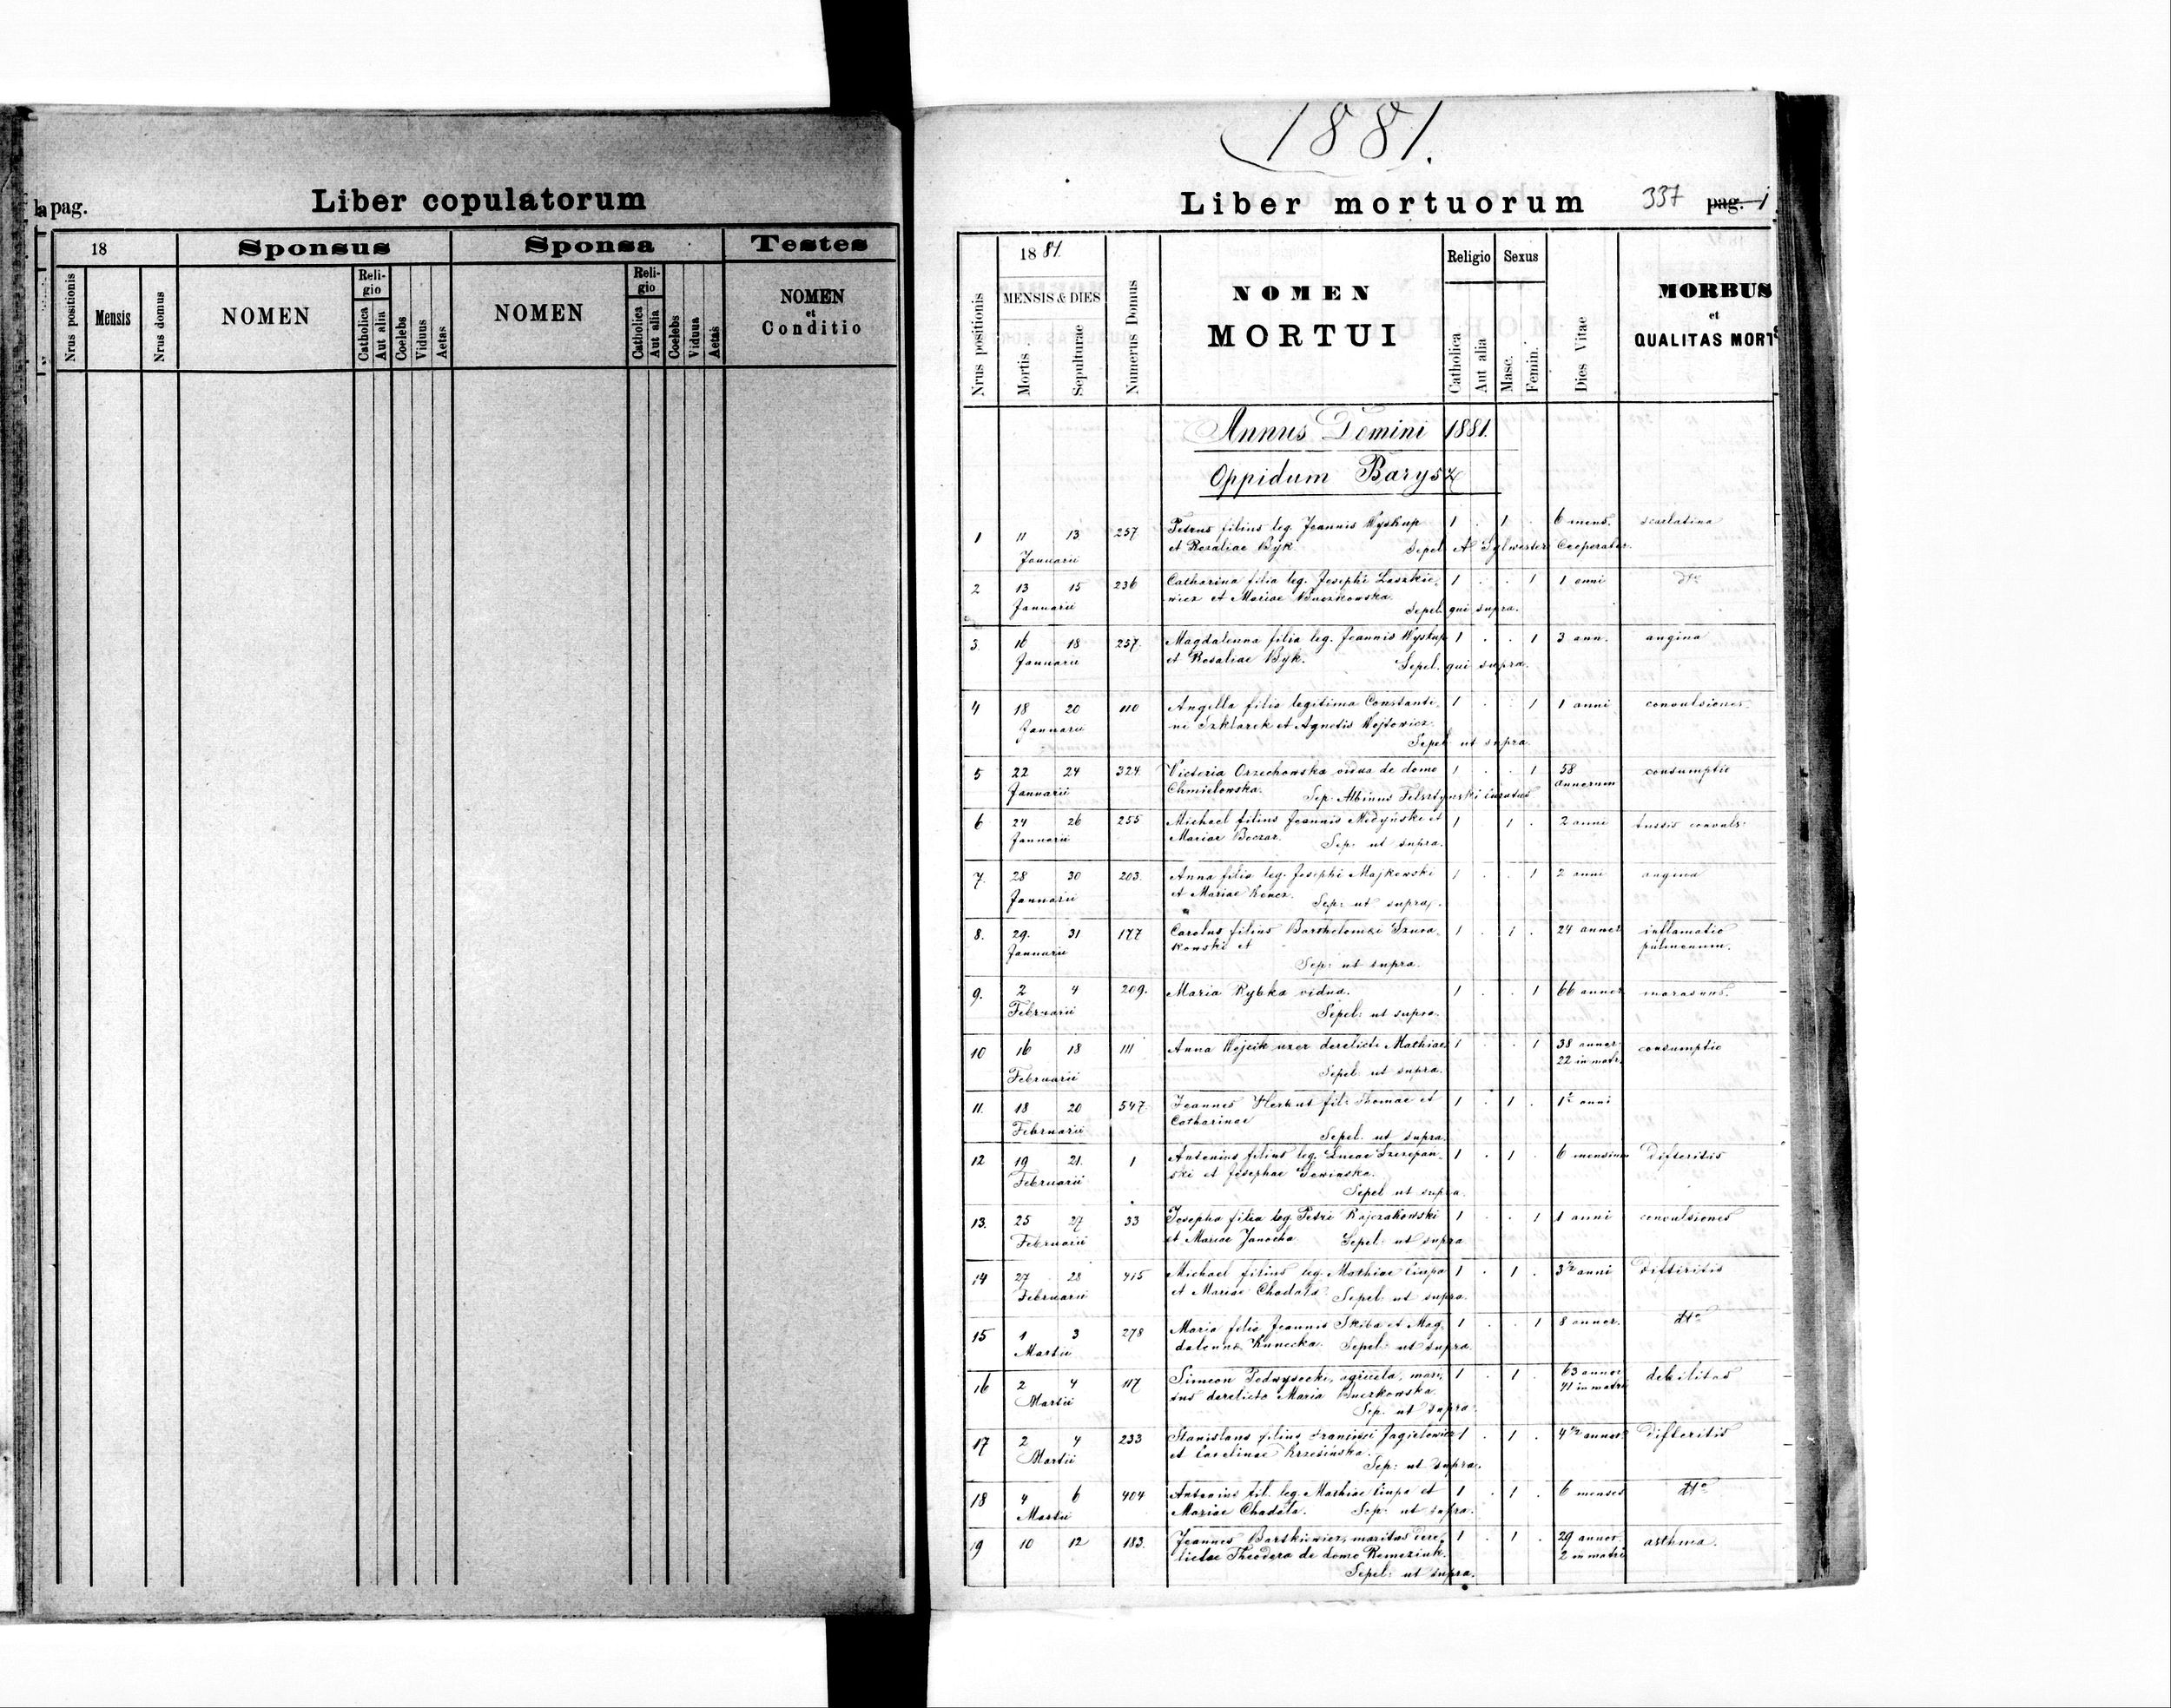 Liber copulatorum
pag.
18 Sponsus Sponsa Testes
Nrus positionis Mensis Nrus domus NOMEN Religio Catholica Aut alia Coelebs Viduus Aetas NOMEN Religio Catholica Aut alia Coelebs Vidua Aetas NOMEN et Conditio
1881.
Liber mortuorum 337 pag. 1
Nrus positionis 1881. MENSIS & DIES Mortis Sepulturae Numerus Domus NOMEN MORTUI Religio Catholica Aut alia Sexus Masc. Femin. Dies Vitae MORBUS et QUALITAS MORTIS
Annus Domini 1881.
Oppidum Barysz
1 11 13 257 Petrus filius leg. Joannis Wyskup 1 . 1 . 6 mens. scarlatina
Januarii et Rosaliae Byk. Sepel. Sylwester Cooperator.
2 13 15 236 Catharina filia leg. Josephi Laszkie- 1 . . 1 1 anni dto
Januarii wicz et Mariae Buczkowska.
Sepel. qui supra.
3. 16 18 257. Magdalenna filia leg. Joannis Wyskup 1 . . 1 3 ann. angina
Januarii et Rosaliae Byk. Sepel. qui supra.
4 18 20 110 Angella filia legitima Constanti- 1 . . 1 1 anni convulsiones.
Januarii ni Szklarek et Agnetis Wojtowicz.
Sepel. ut supra.
5 22 24 324. Victoria Orzechowska vidua de domo 1 . . 1 58 consumptio
Januarii Chmielowska. Sep. Albinus Felsztynski curatus annorum
6 24 26 255 Michael filius Joannis Midyński et 1 1 . 2 anni tussis convuls.
Januarii Mariae Beczar. Sep. ut supra.
7. 28 30 203. Anna filia leg. Josephi Majkowski 1 . . 1 2 anni angina
Januarii et Mariae Koncz. Sep. ut supra.
8. 29. 31 177 Carolus filius Bartholomei 1 . 1 . 24 annor inflamatio
Januarii kowski et pulmonum.
Sep: ut supra.
9. 2 4 209. Maria Rybka vidua. 1 . . 1 66 annor marasmus.
Februarii Sepel: ut supra.
10 16 18 111 Anna Wojcik uxor derelicti Mathiae 1 . . 1 38 annor consumptio
Februarii Sepel: ut supra. 22 in matr.
11. 18 20 547 Joannes Herkut fil: Thomae et 1 . 1 . 1½ anni
Februarii Catharinae
Sepel. ut supra.
12 19 21. 1 Antonius filius leg. Lucae Szczepań- 1 . 1 . 6 mensium Difteritis
Februarii ski et Josephae
Sepel ut supra.
13. 25 27 33 Josepha filia leg. Petri Rajczakowski 1 . . 1 1 anni convulsiones
Februarii et Mariae Janocha Sepel: ut supra
14 27 28 415 Michael filius leg. Mathiae Ciupa 1 . 1 . 3½ anni Diftiritis
Februarii et Mariae Chadała Sepel: ut supra.
15 1 3 278 Maria filia Joannis Skiba et Mag- 1 . . 1 8 annor. dto
Martii dalenna Kunecka. Sepel: ut supra.
16 2 4 117 Simeon Podwysocki, agricola, mari- 1 . 1 . 63 annor debilitas
Martii tus derelicta Maria Buczkowska. 41 in matri
Sep. ut supra.
17 2 4 233 Stanislaus filius Francisci Jagielowicz 1 . 1 . 4½ annor Difteritis
Martii et Carolinae Krzesińska.
Sep: ut supra.
18 4 6 404 Antonius fil. leg. Mathiae Ciupa et 1 . 1 . 6 menses dto
Martii Mariae Chadała. Sep: ut supra.
19 10 12 183. Joannes Bartkiewicz, maritus dere- 1 . 1 . 29 annor. asthma.
lictae Theodora de domo Remeziuk. 2 in matri
Sepel: ut supra.